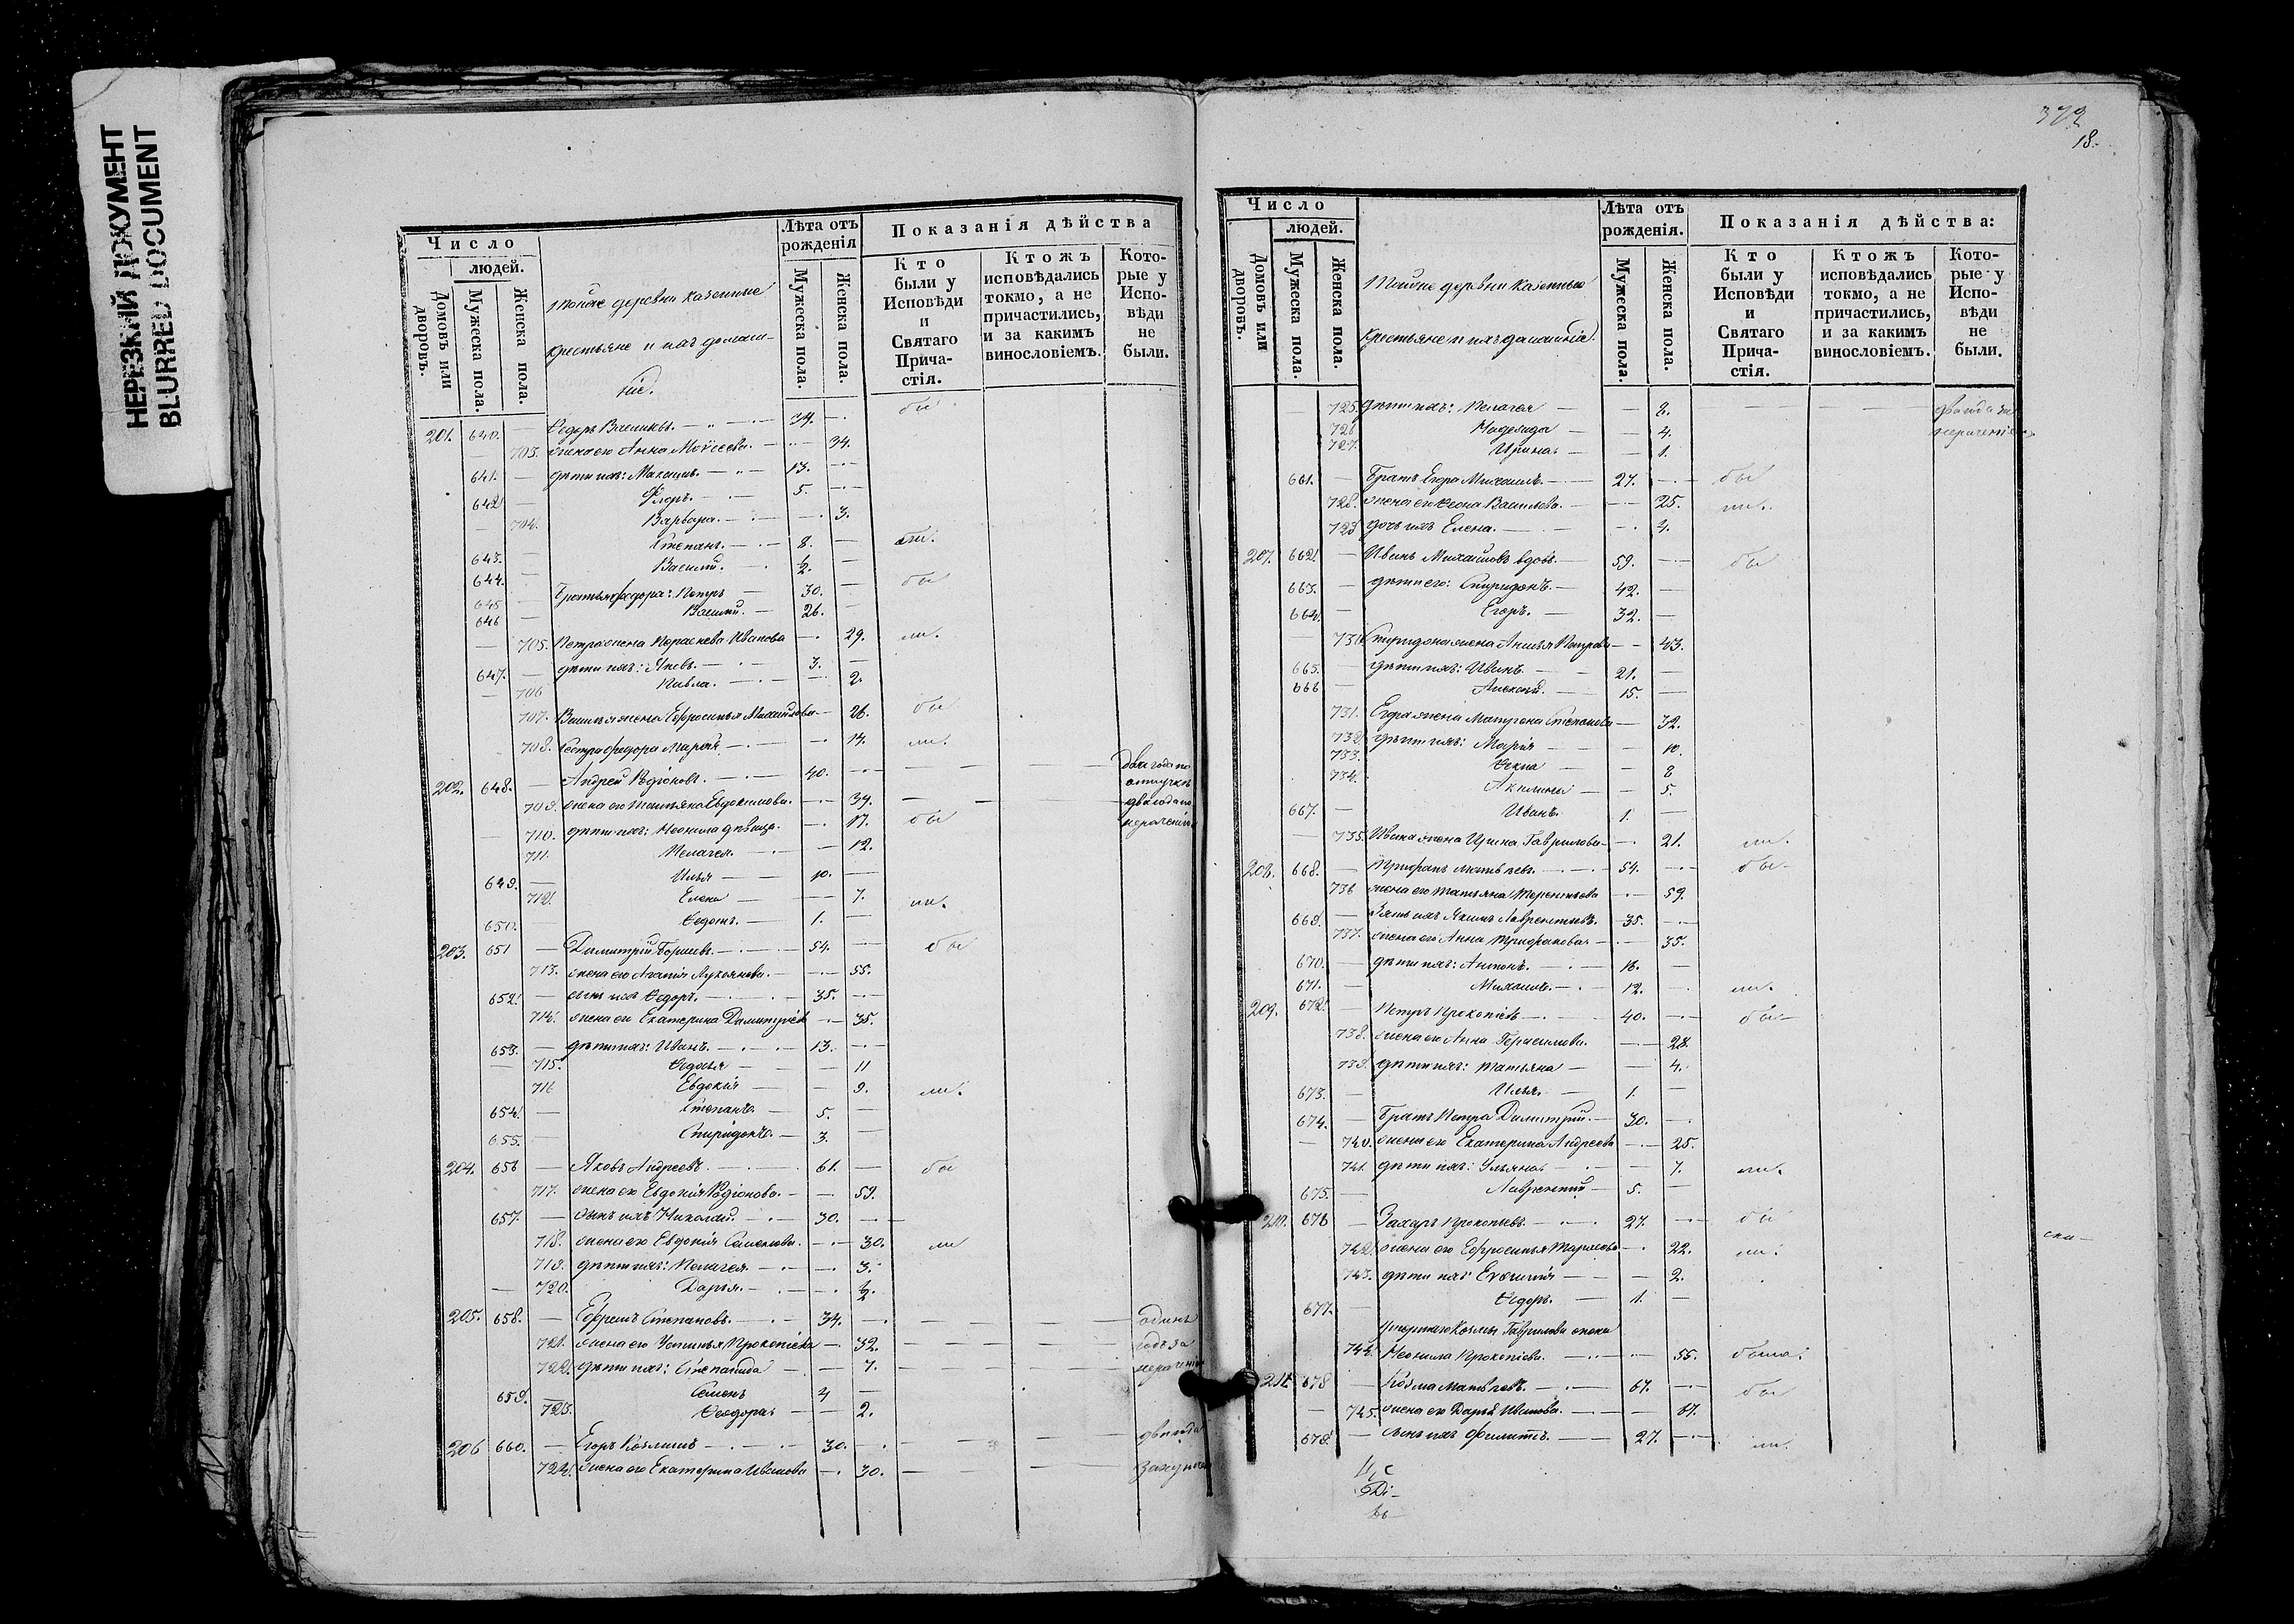 НЕРЕЗКИЙ ДОКУМЕНТ
BLURRED DOCUMENT
Число
людей.
Домовъ или дворовъ.
Мужеска пола.
Женска пола.
Тойже деревни казенные
крестьяне и ихъ домаш-
ніе.
Лѣта отъ рожденія
Мужеска пола.
Женска пола.
Показанія дѣйства
Кто были у Исповѣди и Святаго Прича-стія.
Ктожъ исповѣдались токмо, а не причастились, и за какимъ винословіемъ.
Кото-рые у Испо-вѣди не были.
201. 640. — Ѳедоръ Васильевъ. — 34. — бы
— 703. жена его Анна Моѵсеева. — 34.
641. — дѣти ихъ: Максимъ. — 13. —
642 — Флоръ. — 5. —
— 704. Варвара. — 3.
643. — Степанъ. — 8. — ли.
644. — Василий. — ½. —
645 — Братья Федора: Петръ — 30. — бы
646 — Василий. — 26. —
— 705. Петра жена Парасково Иванова — 29. ли.
647. — дѣти ихъ: Яковъ. — 3. —
— 706 Павла. — 2.
707. Василья жена Ефросинья Михайлова — 26. бы
708. Сестра федора Марѳа — 14. ли.
202. 648. — Андрей Родіоновъ. — 40. — два года по
отлучкѣ
709. жена его Татьяна Евдокимова. — 34. — два года по
нерачению
— 710. дѣти ихъ: Неонила дѣвица. — 17. бы
711. Пелагея. — 12.
649. — Илья — 10. —
712. Елена — 7. ли.
650. — Ѳедотъ. — 1. —
203. 651 — Димитрій — 54. — бы
713. жена его Агапія Лукоянова. — 55.
652. — сынъ ихъ Ѳедоръ. — 35. —
714. жена его Екатерина Димитріева — 35.
653. — дѣти ихъ: Иванъ. — 13. —
— 715. Ѳедосья — 11
716 Евдокія — 9. ли.
654. — Степанъ. — 5. —
655. — Спиридонъ. — 3. —
204. 656 — Яковъ Андреевъ. — 61. — бы
717. жена его Евдокія Родіонова. — 59.
657. — сынъ ихъ Николай. — 30. —
718. жена его Евдокія Семенова. — 30. ли
719. дѣти ихъ: Пелагея. — 3.
— 720. Дарья. — ½.
205. 658. — Ефремъ Степановъ. — 34. — одинъ
721. жена его Устинья Прокопіева — 32. — годъ за
722. дѣти ихъ: Степанида — 7. — нерачениe
659. — Семенъ 4 —
723. Ѳеодора — 2.
206 660. — Егоръ Козминъ — 30. — два года
724. жена его Екатерина Иванова — 30. —
372
18.
Число
людей.
Домовъ или дворовъ.
Мужеска пола.
Женска пола.
Тойже деревни казенные
крестьяне и ихъ домашніе.
Лѣта отъ рожденія.
Мужеска пола.
Женска пола.
Показанія дѣйства:
Кто были у Исповѣди и Святаго Прича-стія.
Ктожъ исповѣдались токмо, а не причастились, и за какимъ винословіемъ.
Кото-рые у Испо-вѣди не были.
— 725. дѣти ихъ: Пелагея — 8. — два года за
726 Надежда — 4. нерачениемъ
727. Ирина — 1.
661. — Братъ Егора Михаилъ — 27. — бы
728. жена его Ѳеона Васильева. — 25. ли.
729 дочь ихъ Елена. — 4.
207. 662. — Иванъ Михайловъ вдовъ. — 59. — бы
663. — дѣти его: Спиридонъ. — 42. —
664 — Егоръ. — 32. —
— 730. Спиридона жена Анисья Петрова — 43.
665. — дѣти ихъ: Иванъ — 21. —
666 — Алексѣй. — 15. —
731. Егора жена Матрена Степанова — 32.
732. дѣти ихъ: Марія — 10.
733. Ѳекла — 8
734. Акилина — 5.
667. — Иванъ. 1. —
— 735. Ивана жена Ирина Гаврилова — 21. ли.
208. 668. — Трифонъ Матвѣевъ. — 54. — бы
736 жена его Татьяна Терентьева — 59.
669. — Зять ихъ Якимъ Лаврентьевъ. 35. —
737. жена его Анна Трифонова — 35.
670. — дѣти ихъ: Антонъ. — 16. —
671. — Михаилъ. — 12. — ли.
209. 672. — Петръ Прокопіевъ — 40. — бы
738. жена его Анна Герасимова. — 28.
739. дѣти ихъ: Татьяна — 4.
673. — Илья. — 1. —
674. — Братъ Петра Димитрій. — 30. —
— 740. жена его Екатерина Андреева — 25.
741. дѣти ихъ: Ульяна — 7. ли.
675. — Лаврентий — 5. —
210. 676 — Захаръ Прокопьевъ. — 27. — бы
742. жена его Ефросинья Тарасова — 22. ли.
743. дѣти ихъ: Евѳимія — 2.
677. — Ѳедоръ. — 1. —
Умершаго Козмы Гаврилова жена
744. Неонила Прокопіева. — 55. была.
211. 678 — Козма Матвѣевъ. — 67. — бы
— 745. жена его Дарья Иванова. — 67.
679. — сынъ ихъ Филиппъ. — 27. — ли.